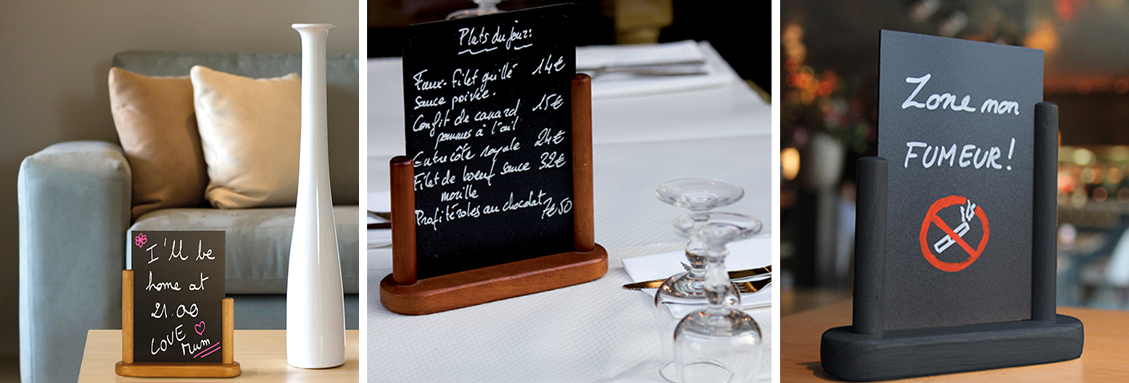 I'll be
home at
21.00
LOVE
Mum
Plats du jour:
Faux-filet grillé 14€
Sauce poivre.
Confit de canard 15€
pommes à l'ail
Entrecôte royale 24€
Filet de bœuf sauce 32€
morille
Profitéroles au chocolat 7€50
Zone non
FUMEUR!